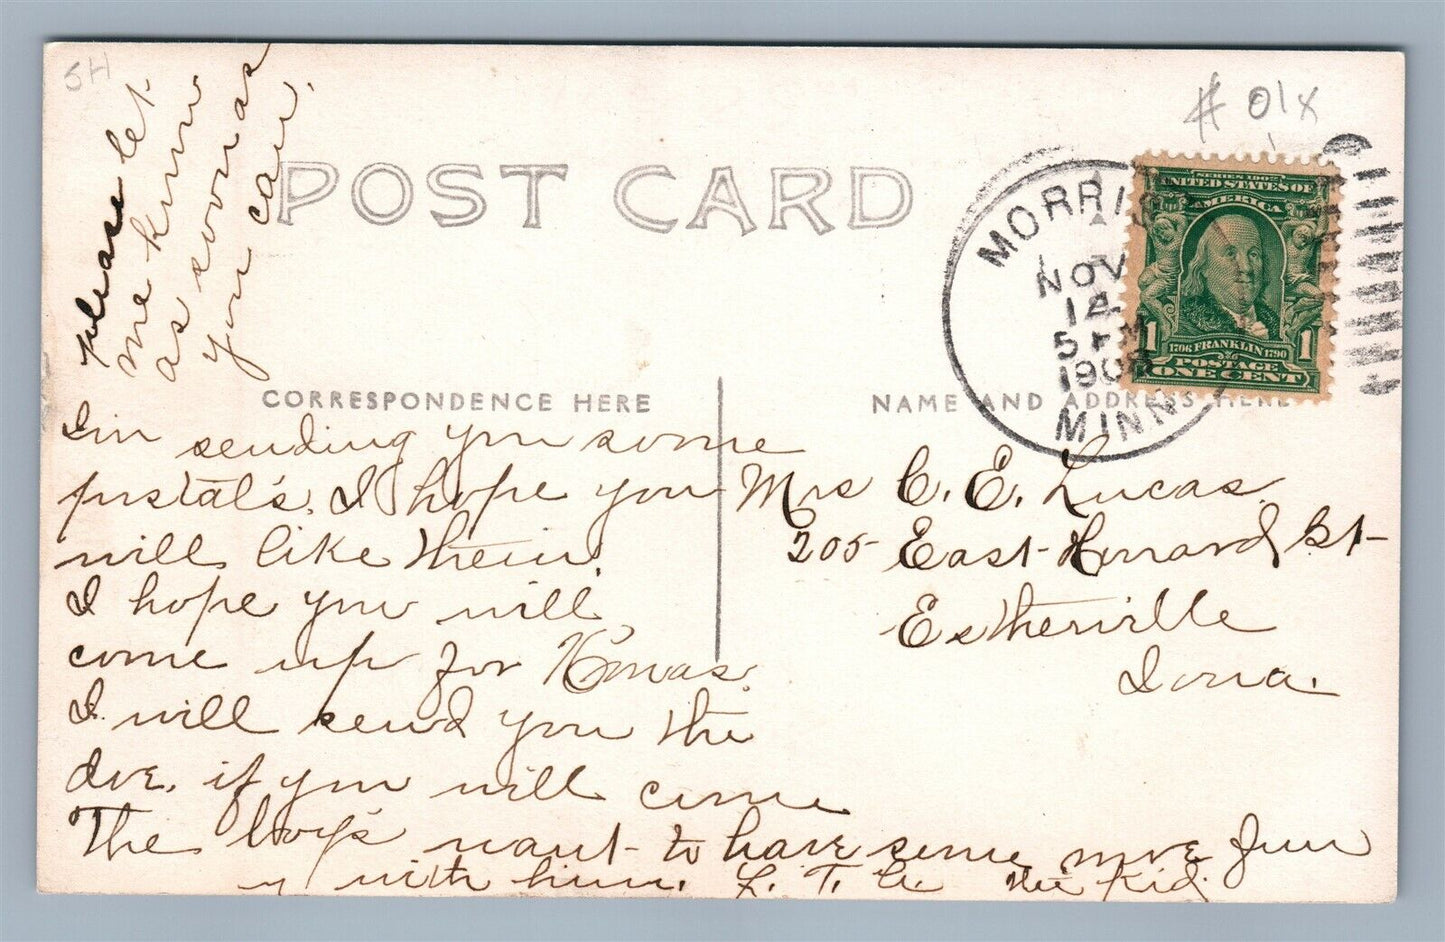 5H
# 01x
please let
me know
as soon as
you can.
POST CARD
MORRIS
NOV
14
5 PM
190
MINN
SERIES 1902
UNITED STATES OF
AMERICA
1 1
1706 FRANKLIN 1790
POSTAGE
ONE CENT
CORRESPONDENCE HERE
NAME AND ADDRESS HERE
Im sending you some
postal's. I hope you
will like them.
I hope you will
come up for Xmas.
I will send you the
if you will come
The boy's want to have some more fun
with him. the Kid.
Mrs C. E. Lucas
205 East Howard St
Estherville
Iowa.